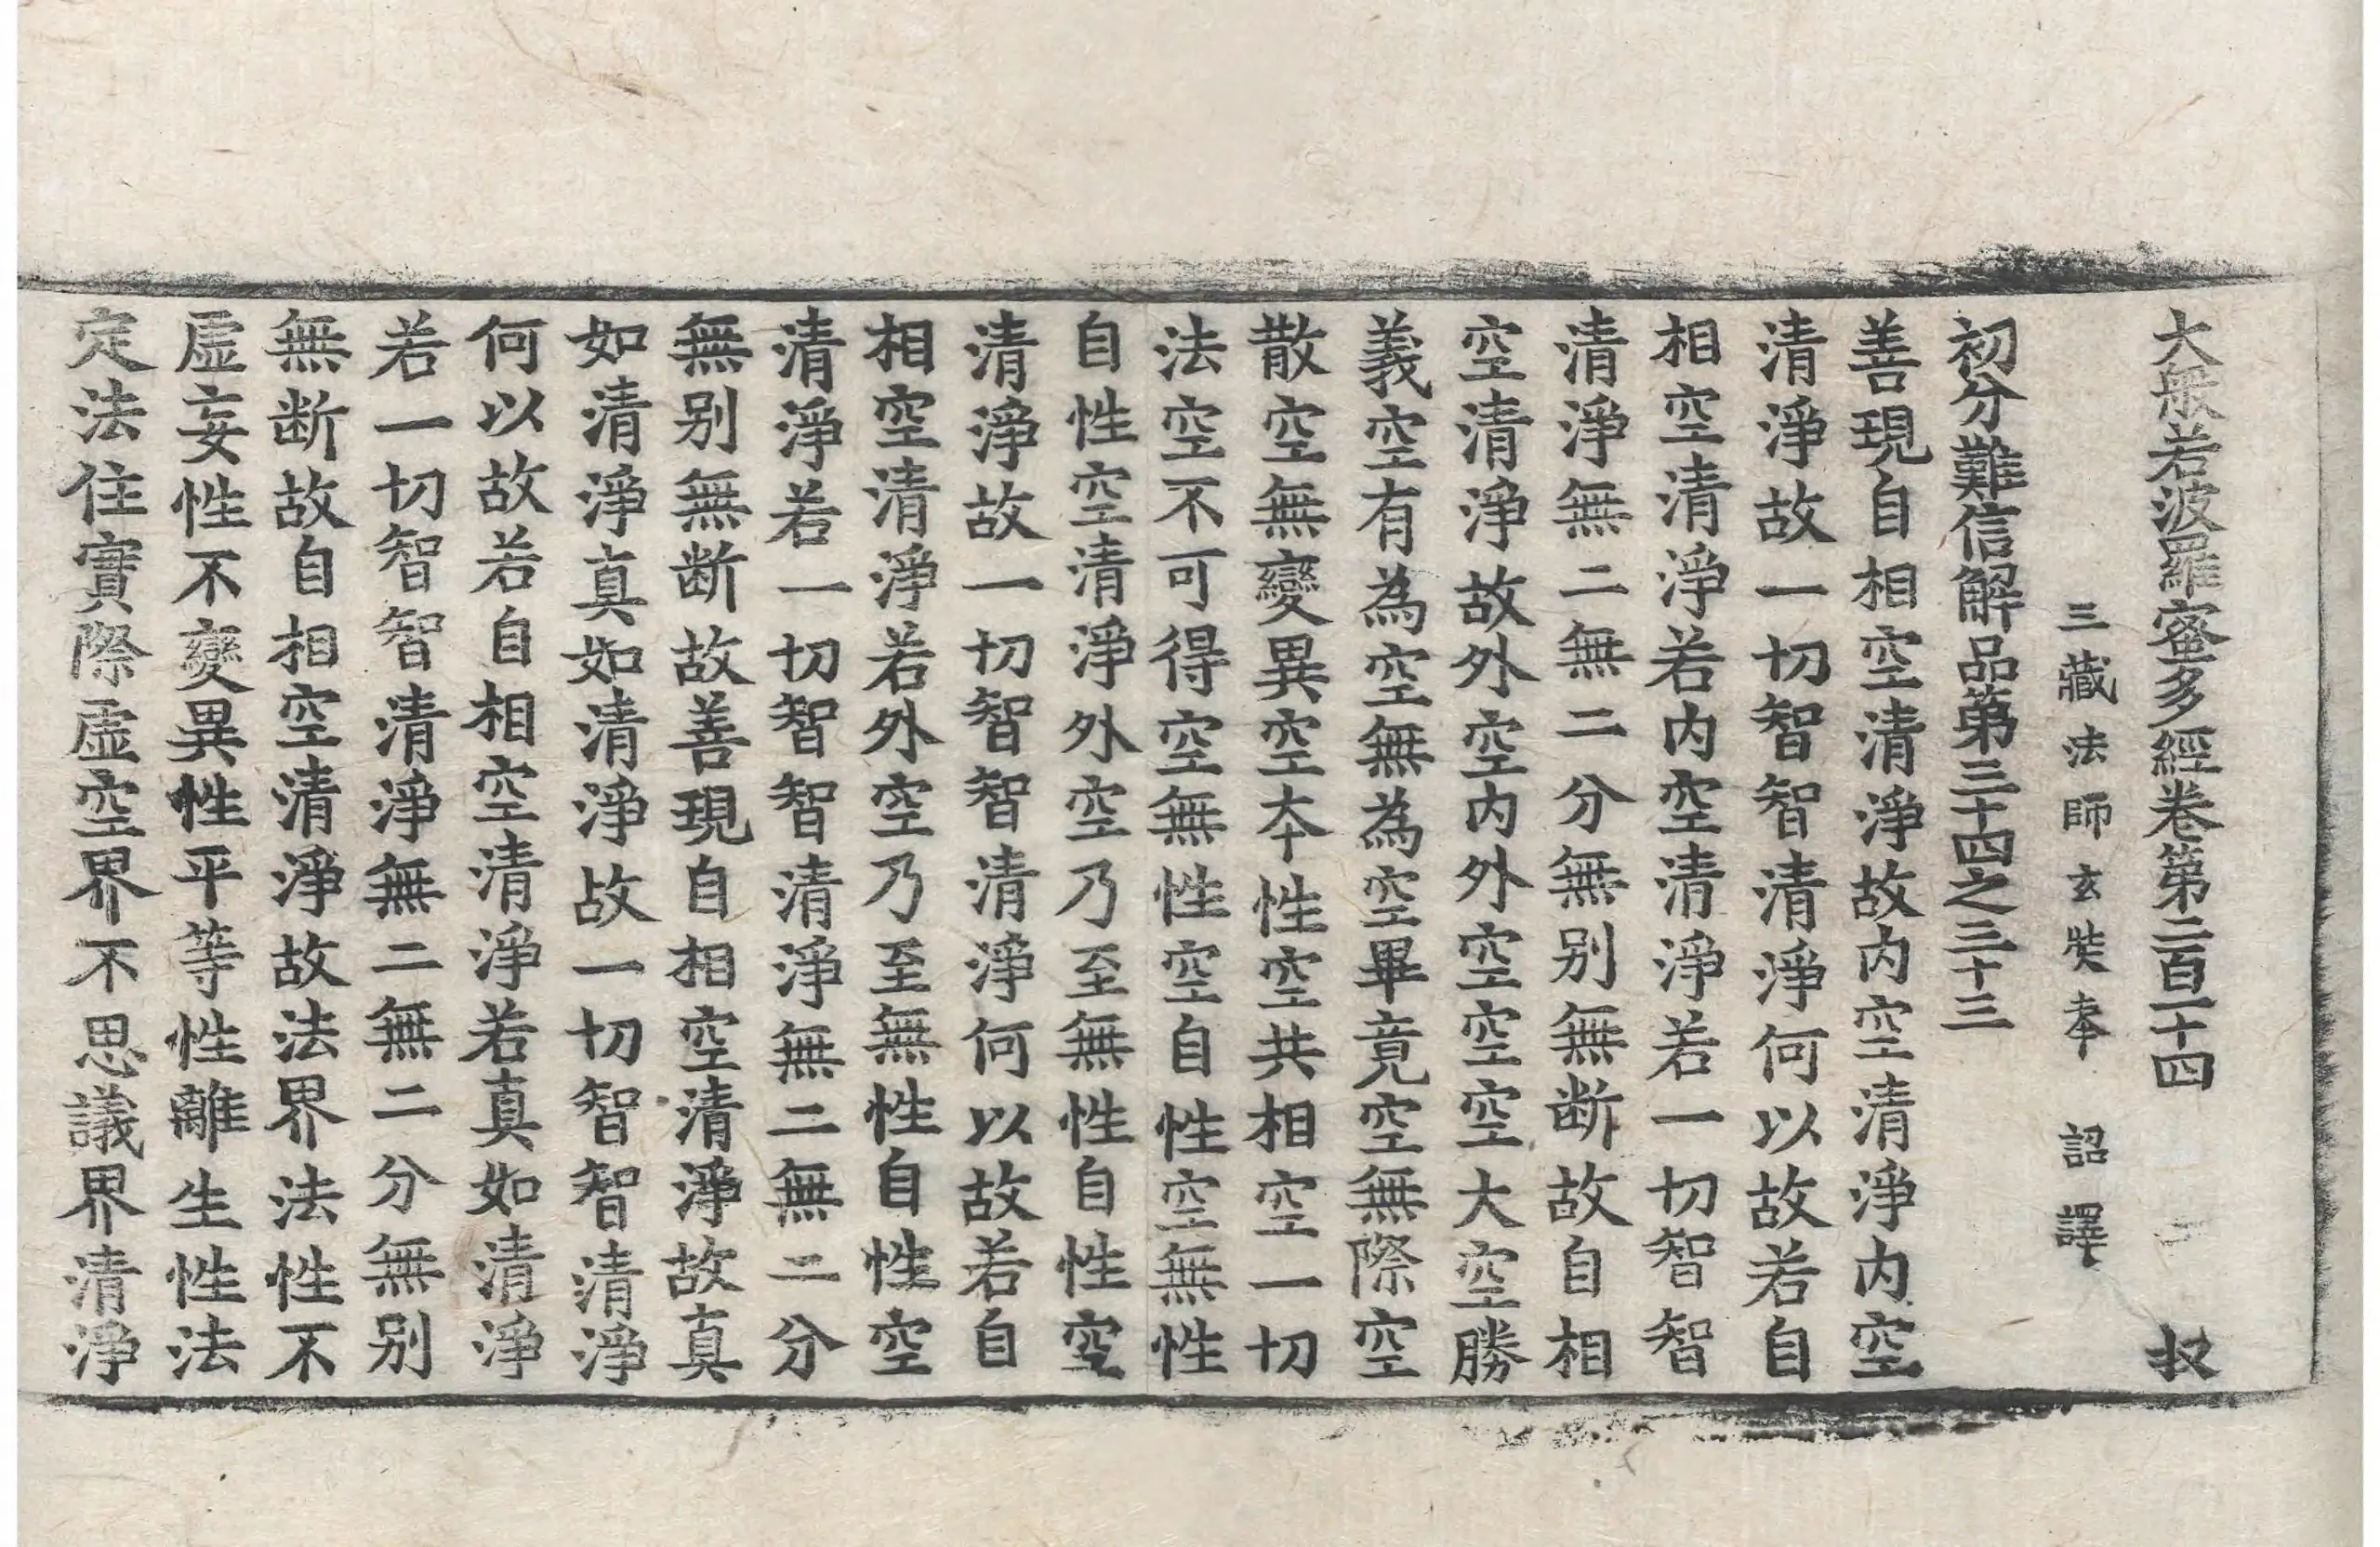 大般若波羅蜜多經卷第二百一十四 収
三藏法師玄奘奉 詔譯
初分難信解品第三十四之三十三
善現自相空清淨故内空清淨内空
清淨故一切智智清淨何以故若自
相空清淨若内空清淨若一切智智
清淨無二無二分無別無断故自相
空清淨故外空内外空空空大空勝
義空有為空無為空畢竟空無際空
散空無變異空本性空共相空一切
法空不可得空無性空自性空無性
自性空清淨外空乃至無性自性空
清淨故一切智智清淨何以故若自
相空清淨若外空乃至無性自性空
清淨若一切智智清淨無二無二分
無別無断故善現自相空清淨故真
如清淨真如清淨故一切智智清淨
何以故若自相空清淨若真如清淨
若一切智智清淨無二無二分無別
無断故自相空清淨故法界法性不
虛妄性不變異性平等性離生性法
定法住實際虛空界不思議界清淨